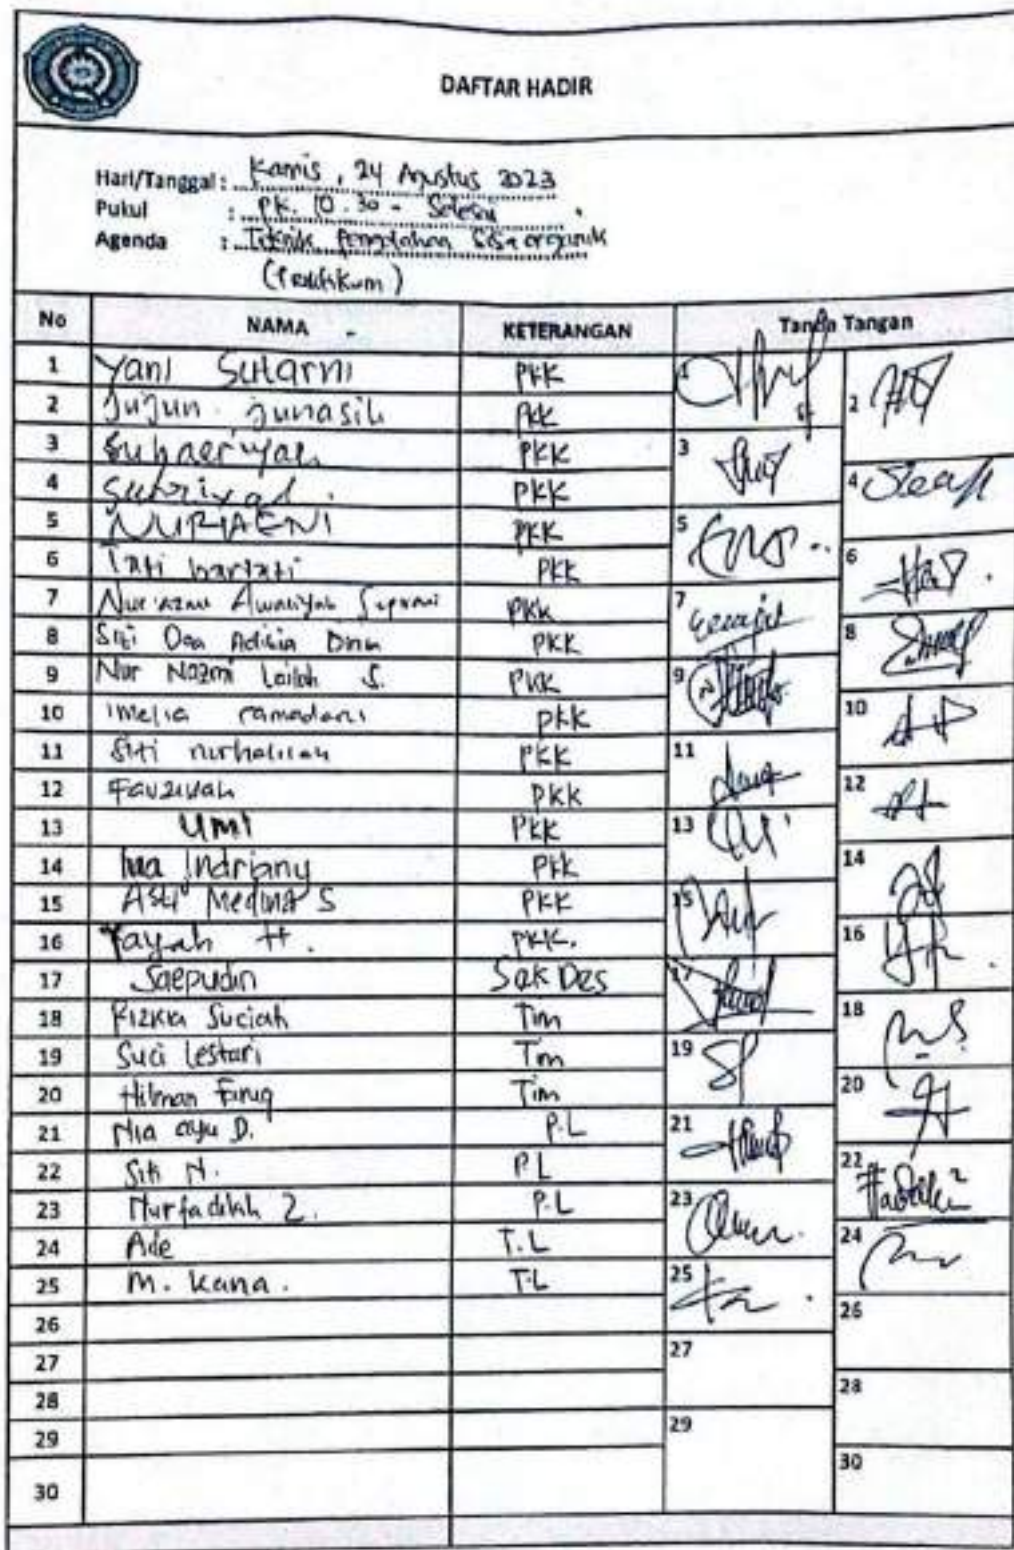 DAFTAR HADIR
Hari/Tanggal : Kamis, 24 Agustus 2023
Pukul : PK. 10.30 - Selesai
Agenda : Teknik Pengolahan Sisa organik
(Praktikum)
No NAMA KETERANGAN Tanda Tangan
1 Yani Sutarni PKK 1
2 Jujun Junasih PKK 2
3 Suhaeriyah PKK 3
4 PKK 4
5 NURAENI PKK 5
6 Tati hartati PKK 6
7 PKK 7
8 Siti PKK 8
9 Nur Nazmi Lailah S. PKK 9
10 imelia ramadani PKK 10
11 Siti nurhalizah PKK 11
12 Fauziyah PKK 12
13 Umi PKK 13
14 Indriany PKK 14
15 Asti Medina S PKK 15
16 Yayah H. PKK. 16
17 Saepudin Sek Des 17
18 Rizkia Suciah Tim 18
19 Suci Lestari Tim 19
20 Hilman Tim 20
21 Nia ayu D. P.L 21
22 Siti N. P.L 22
23 Nurfadilah Z. P.L 23
24 Ade T.L 24
25 M. Kana. T.L 25
26 26
27 27
28 28
29 29
30 30